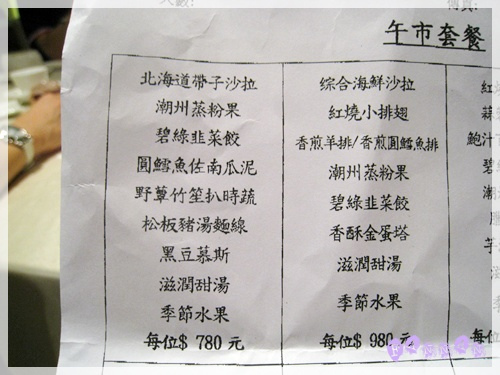 午市套餐
北海道帶子沙拉
潮州蒸粉果
碧綠韭菜餃
圓鱈魚佐南瓜泥
野蕈竹笙扒時蔬
松板豬湯麵線
黑豆慕斯
滋潤甜湯
季節水果
每位$ 780 元
綜合海鮮沙拉
紅燒小排翅
香煎羊排/香煎圓鱈魚排
潮州蒸粉果
碧綠韭菜餃
香酥金蛋塔
滋潤甜湯
季節水果
每位$ 980 元
紅
鮑汁
碧
每位